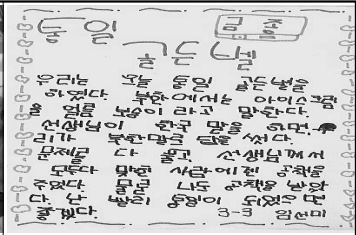 통일
금 상
골든벨
우리는 오늘 통일 골든벨을
하였다. 북한에서는 아이스크림
을 얼음 보숭이 라고 말한다.
선생님이 한국 말을 하면, 우
리가 북한말로 답을 썼다.
문제를 다 풀고, 선생님께서
모두다 말한 사람에겐 공책을
주었다. 물론 나도 공책을 받았
다. 난 빨리 통일이 되었으면
좋겠다.
3-3 임선미